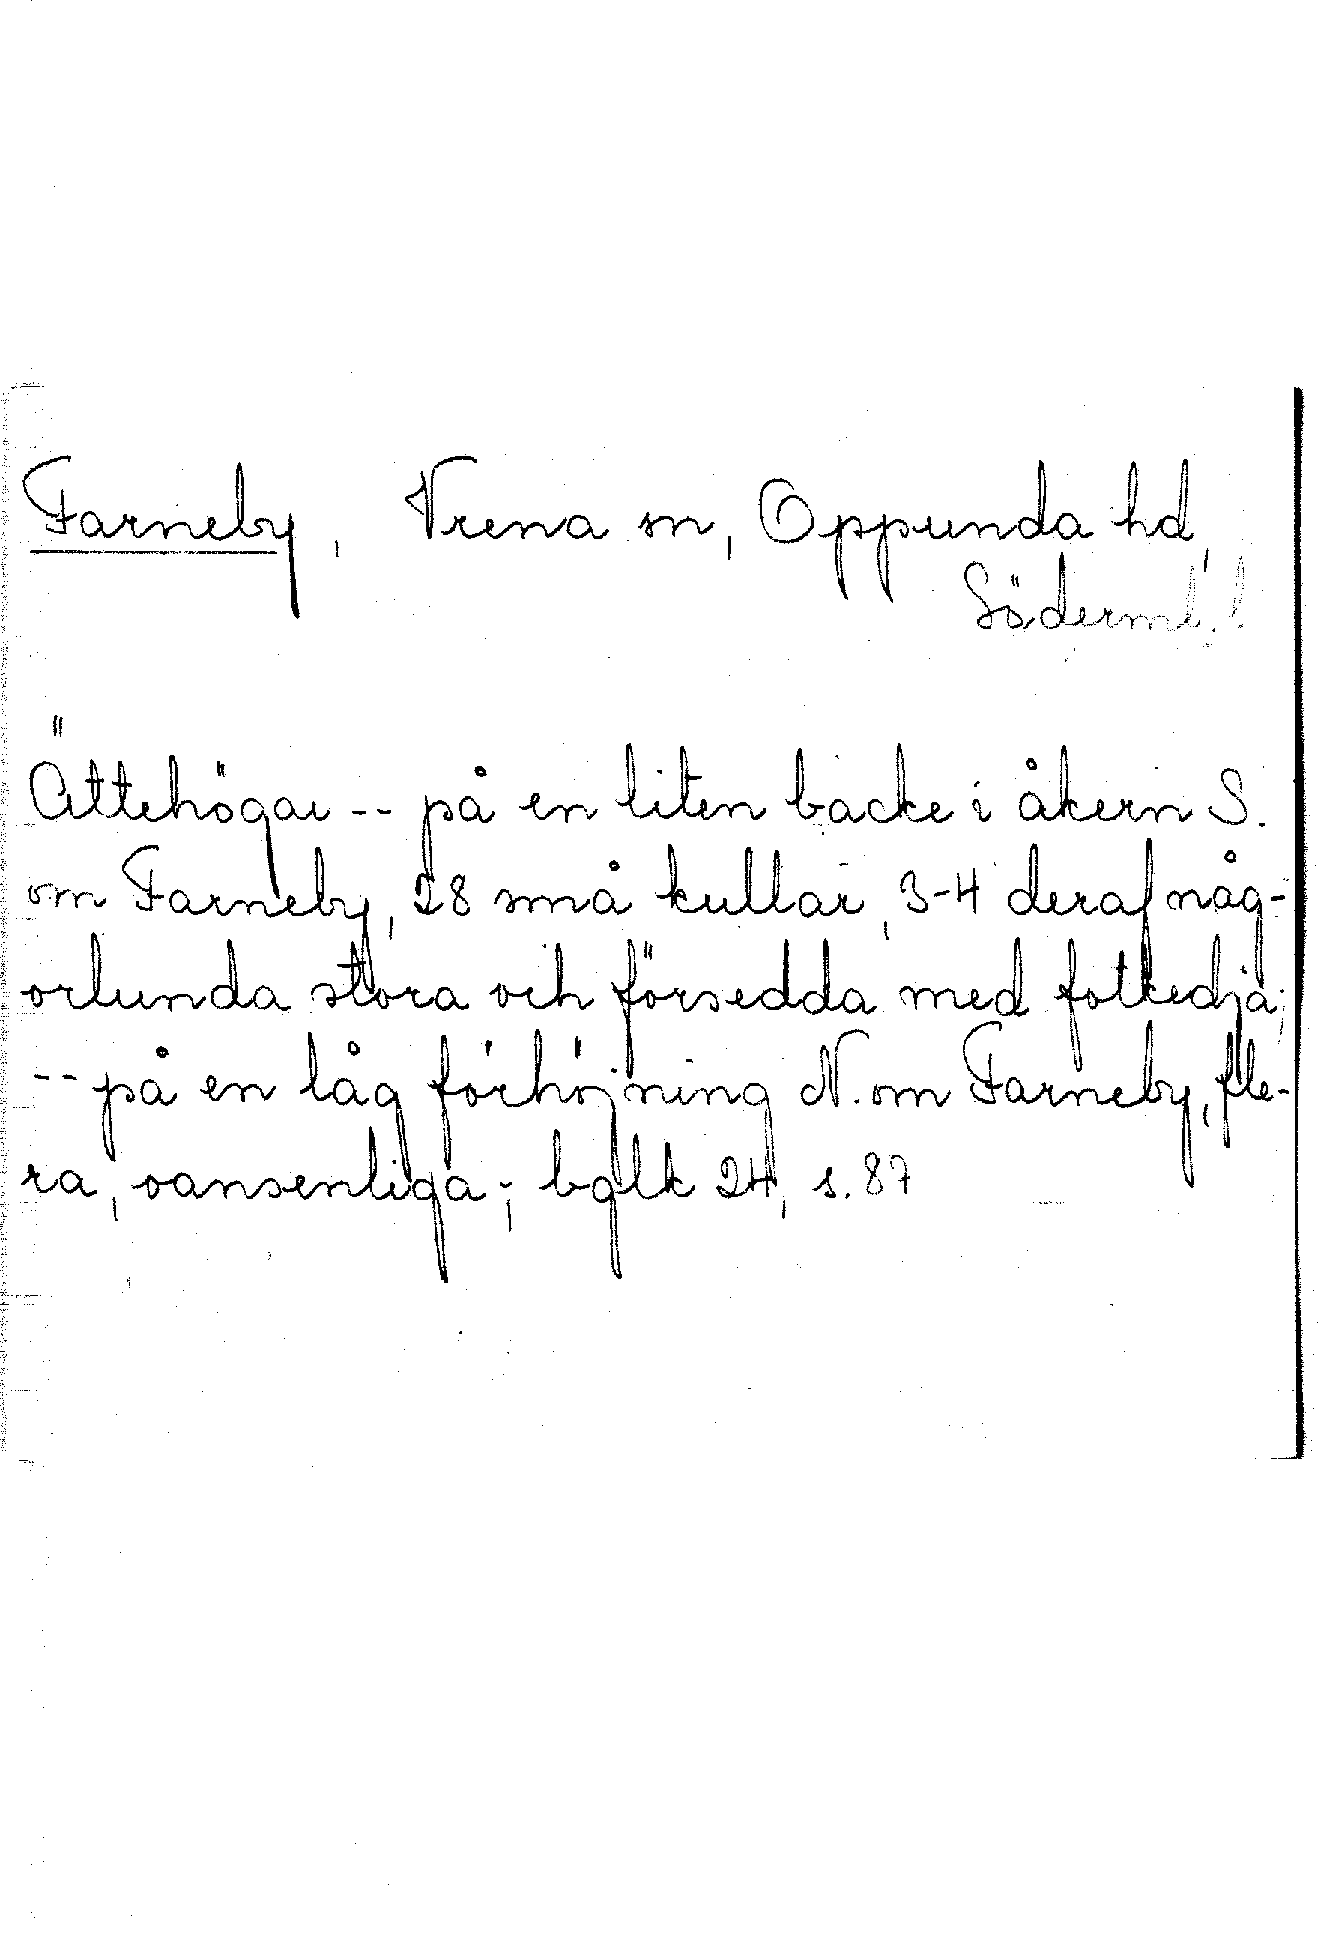 Farneby, Vrena sn, Oppunda hd,
Söderml. l
Ättehögar -- på en liten backe i åkern S.
om Farneby, 28 små kullar, 3-4 deraf någ-
orlunda stora och försedda med fotkedja;
-- på en låg förhöjning N. om Farneby, fle-
ra, oansenliga -; bglk 24, s. 87